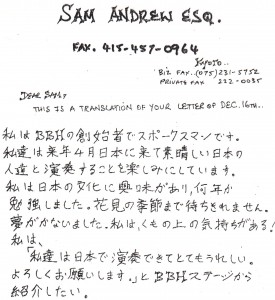 SAM ANDREW ESQ.
FAX. 415-457-0964
Kyoto..
BIZ FAX..(075)231-5752
PRIVATE FAX 222-0035
DEAR SAM,
THIS IS A TRANSLATION OF YOUR LETTER OF DEC.16TH..
私はBBHの創始者でスポークスマンです。
私達は来年4月日本に来て素晴しい日本の
人達と演奏することを楽しみにしています。
私は日本の文化に興味があり,何年か
勉強しました。花見の季節まで待ちきれません。
夢がかないました。私は、くもの上の気持ちがある!
私は、
「私達は日本で演奏できてとてもうれしい。
よろしくお願いします。」とBBHステージから
紹介したい。